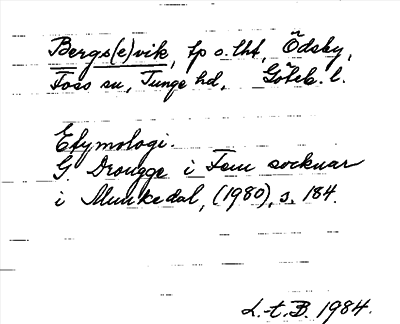 Bergs(e)vik, tp o. lht, Ödsby,
Foss sn, Tunge hd, Göteb. l.
Etymologi.
G Drougge i Fem socknar
i Munkedal, (1980), s. 184.
L.-t. B. 1984.